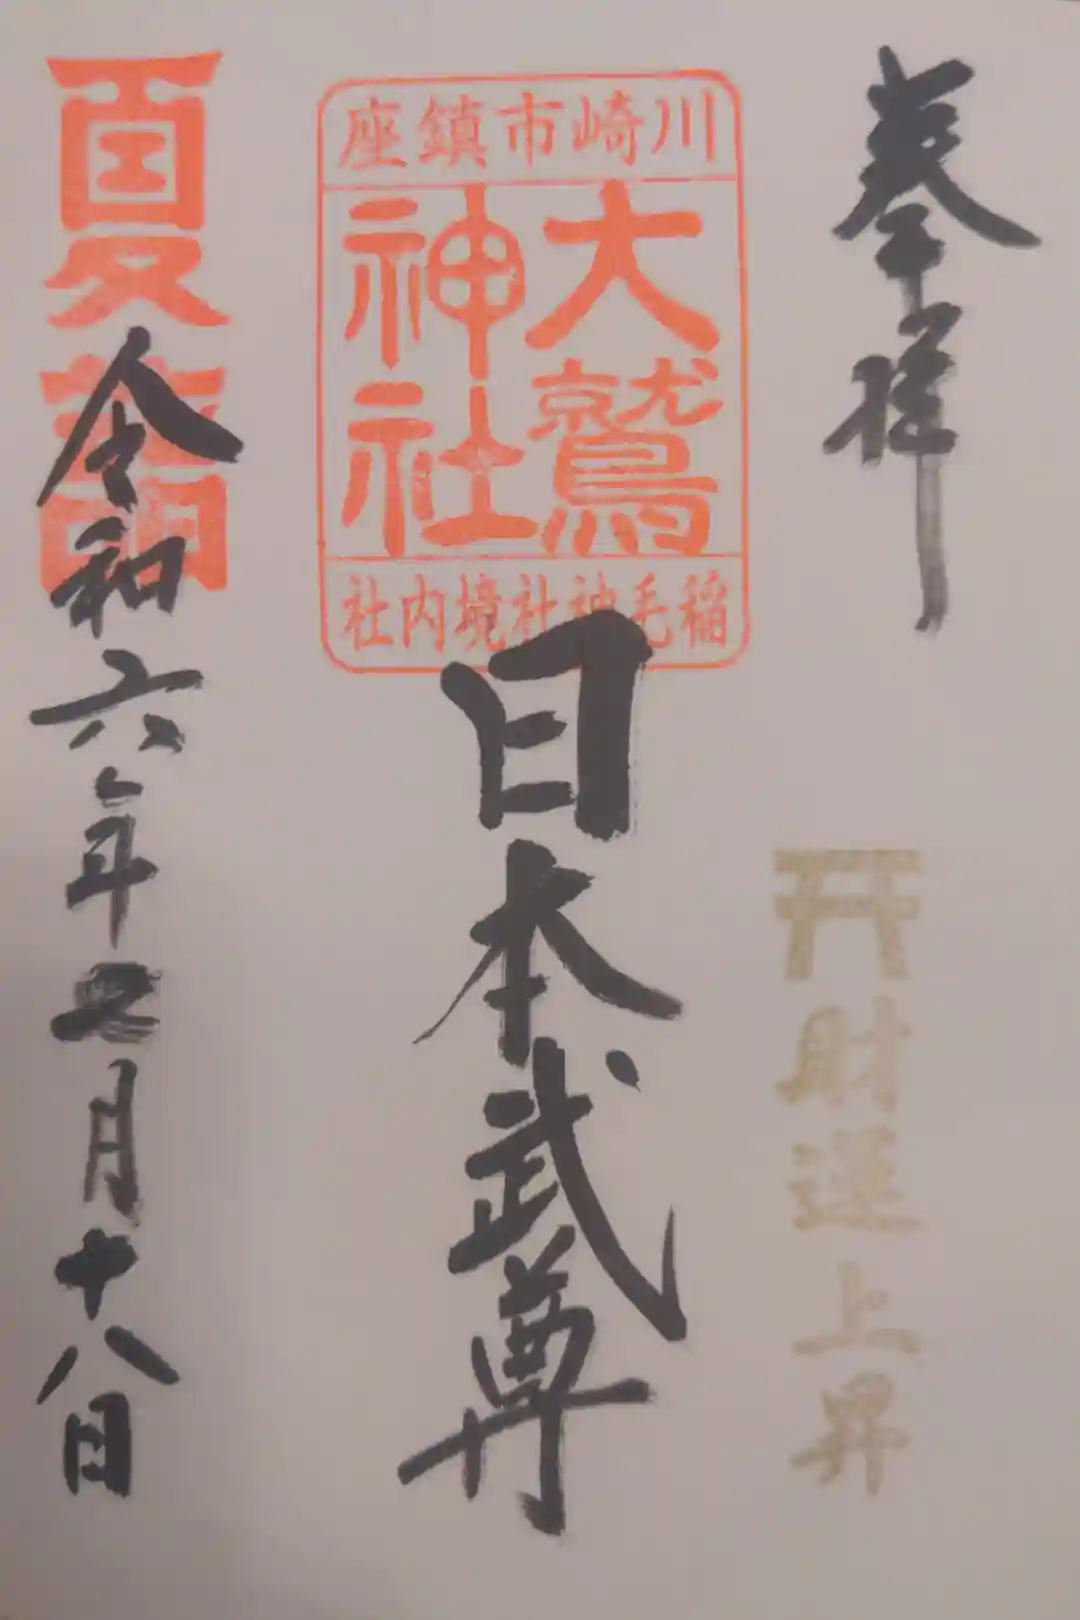 奉拝
財運上昇
川崎市鎮座
大鷲
神社
稲毛神社境内社
日本武尊
夏
令和六年七月十八日